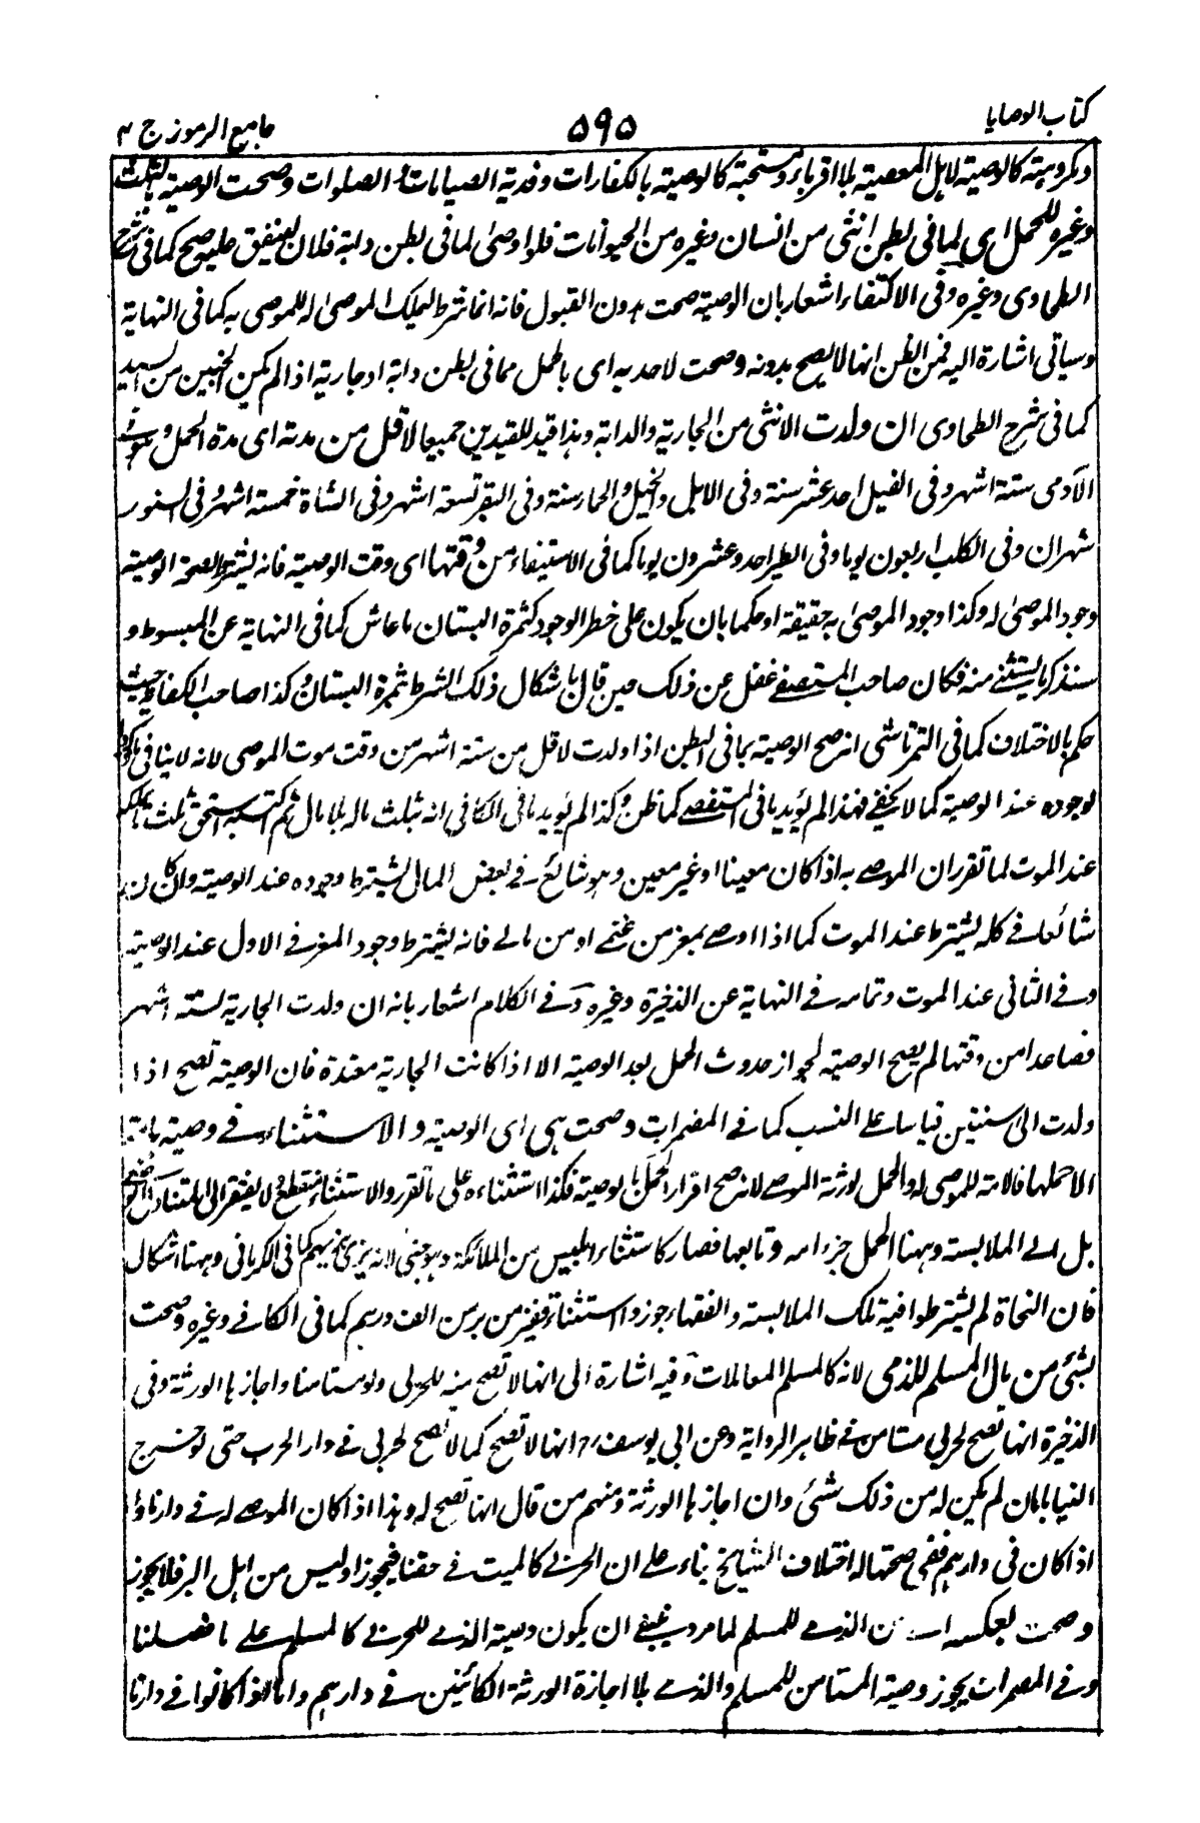 كتاب الوصايا
٥٩٥
جامع الرموز ج ٣
ومكروهة كالوصية لاهل المعصية بلا اقرباء ومستحبة كالوصية بالكفارات وفدية الصيامات والصلوات وصحت الوصية بالثلث
وغيره للحمل اى لما فى بطن انثى من انسان وغيره من الحيوانات فلو اوصى لما فى بطن دابة فلان لينفق عليه صح كما فى شرح
الطحاوى وغيره وفى الاكتفاء اشعار بان الوصية صحت بدون القبول فانه انما شرط ليملك الموصى له للموصى به كما فى النهاية
وسياتى اشارة اليه فمن الظن انها لا يصح بدونه وصحت لاحد به اى بالحمل مما فى بطن دابة او جارية اذا لم يكن الجنين من السيد
كما فى شرح الطحاوى ان ولدت الانثى من الجارية والدابة وهذا قيد للقيدين جميعا لاقل من مدته اى مدة الحمل وهو فى
الآدمى ستة اشهر وفى الفيل احد عشر سنة وفى الابل والخيل والحمار سنة وفى البقر تسعة اشهر وفى الشاة خمسة اشهر وفى السنور
شهران وفى الكلب اربعون يوما وفى الطير احد وعشرون يوما كما فى الاستيفاء من وقتها اى وقت الوصية فانه يشترط لصحة الوصية
وجود الموصى له وكذا وجود الموصى به حقيقة او حكما بان يكون على خطر الوجود كثمرة البستان ما عاش كما فى النهاية عن المبسوط و
سنذكر ما يستثنى منه فكان صاحب المستصفى غفل عن ذلك حين قال باشكال ذلك الشرط بثمرة البستان وكذا صاحب الكفاية حيث
حكم بالاختلاف كما فى التمرتاشى انه صح الوصية بما فى البطن اذا ولدت لاقل من ستة اشهر من وقت موت الموصى لانه لا ينافى
لوجوده عند الوصية كما لا يخفى فهذا لم يؤيد ما فى المستصفى كما ظن وكذا لم يؤيد ما فى الكافى انه ثلث ماله بلا مال ثم اكتسبه استحق ثلث ما يملكه
عند الموت لما تقرر ان الموصى به اذا كان معينا او غير معين وهو شائع فى بعض المال يشترط وجوده عند الوصية وان كان
شائعا فى كله يشترط عند الموت كما اذا اوصى بمعز من غنمى او من مالى فانه يشترط وجود المعز فى الاول عند الوصية
وفى الثانى عند الموت وتمامه فى النهاية عن الذخيرة وغيره وفى الكلام اشعار بانه ان ولدت الجارية لستة اشهر
فصاعدا من وقتها لم يصح الوصية لجواز حدوث الحمل بعد الوصية الا اذا كانت الجارية معتدة فان الوصية تصح اذا
ولدت الى سنتين قياسا على النسب كما فى المضمرات وصحت هى اى الوصية والاستثناء فى وصية بامة
الا حملها فالامة للموصى له والحمل لورثة الموصى لانه صح اقرار الحمل بالوصية فكذا استثناءه على ما تقرر والاستثناء منقطع ولا يفتقر الى
بل الى الملابسة وههنا الحمل جزء امه وتابعها فصار كاستثناء ابليس من الملائكة وهو جنى لانه تربى بينهم كما فى الكرمانى وههنا اشكال
فان النحاة لم يشترطوا فيه تلك الملابسة والفقهاء جوزوا استثناء قفيز من بر من الف درهم كما فى الكافى وغيره وصحت
بشئ من مال المسلم للذمى لانه كالمسلم المعاملات وفيه اشارة الى انها لا تصح منه للحربى ولو مستامنا واجازها الورثة وفى
الذخيرة انها تصح لحربى مستامن فى ظاهر الرواية وعن ابى يوسف انها لا تصح كما لا تصح لحربى فى دار الحرب حتى لو خرج
الينا بامان لم يكن له من ذلك شئ وان اجازها الورثة ومنهم من قال انها تصح له وهذا اذا كان الموصى له فى دارنا واذا
اذا كان فى دارهم ففى صحتها له اختلاف المشايخ بناء على ان الحربى كالميت فى حقنا فيجوز او ليس من اهل البر فلا يجوز
وصحت بعكسه اى من الذمى للمسلم لما مر وينبغى ان يكون وصية الذمى للحربى كالمسلم على ما فصلنا
وفى المضمرات يجوز وصية المستامن للمسلم والذمى بلا اجازة الورثة الكائنين فى دارهم واما اذا كانوا فى دارنا